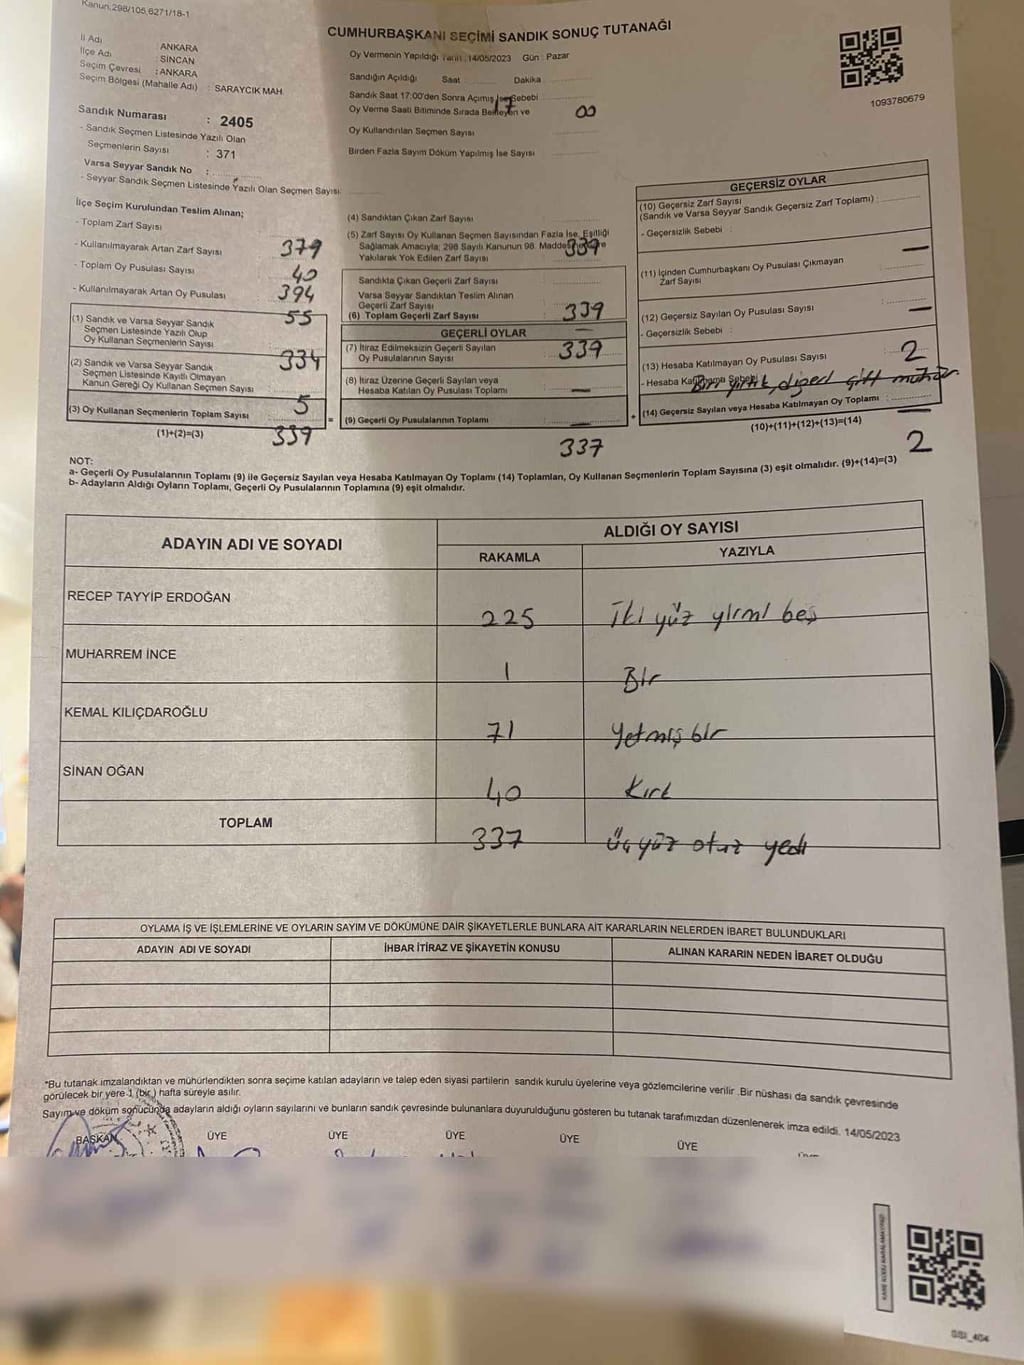 Kanun:298/105,6271/18-1
CUMHURBAŞKANI SEÇİMİ SANDIK SONUÇ TUTANAĞI
İl Adı : ANKARA
İlçe Adı : SİNCAN
Seçim Çevresi : ANKARA
Seçim Bölgesi (Mahalle Adı) : SARAYCIK MAH.
Sandık Numarası : 2405
- Sandık Seçmen Listesinde Yazılı Olan
Seçmenlerin Sayısı : 371
Varsa Seyyar Sandık No :
- Seyyar Sandık Seçmen Listesinde Yazılı Olan Seçmen Sayısı
Oy Vermenin Yapıldığı Tarih : 14/05/2023 Gün : Pazar
Sandığın Açıldığı Saat Dakika
17 00
Sandık Saat 17:00'den Sonra Açımış İse Sebebi
Oy Verme Saati Bitiminde Sırada Bekleyen ve
Oy Kullandırılan Seçmen Sayısı
Birden Fazla Sayım Döküm Yapılmış İse Sayısı
1093780679
İlçe Seçim Kurulundan Teslim Alınan;
- Toplam Zarf Sayısı 379
- Kullanılmayarak Artan Zarf Sayısı 40
- Toplam Oy Pusulası Sayısı 394
- Kullanılmayarak Artan Oy Pusulası 55
(1) Sandık ve Varsa Seyyar Sandık
Seçmen Listesinde Yazılı Olup
Oy Kullanan Seçmenlerin Sayısı 334
(2) Sandık ve Varsa Seyyar Sandık
Seçmen Listesinde Kayıtlı Olmayan
Kanun Gereği Oy Kullanan Seçmen Sayısı 5
(3) Oy Kullanan Seçmenlerin Toplam Sayısı 339
(1)+(2)=(3)
(4) Sandıktan Çıkan Zarf Sayısı 339
(5) Zarf Sayısı Oy Kullanan Seçmen Sayısından Fazla İse, Eşitliği
Sağlamak Amacıyla; 298 Sayılı Kanunun 98. Madde
Yakılarak Yok Edilen Zarf Sayısı
Sandıkta Çıkan Geçerli Zarf Sayısı 339
Varsa Seyyar Sandıktan Teslim Alınan
Geçerli Zarf Sayısı —
(6) Toplam Geçerli Zarf Sayısı 339
GEÇERLİ OYLAR
(7) İtiraz Edilmeksizin Geçerli Sayılan
Oy Pusulalarının Sayısı —
(8) İtiraz Üzerine Geçerli Sayılan veya
Hesaba Katılan Oy Pusulası Toplamı —
(9) Geçerli Oy Pusulalarının Toplamı 337
GEÇERSİZ OYLAR
(10) Geçersiz Zarf Sayısı
(Sandık ve Varsa Seyyar Sandık Geçersiz Zarf Toplamı) :
- Geçersizlik Sebebi : —
(11) İçinden Cumhurbaşkanı Oy Pusulası Çıkmayan
Zarf Sayısı —
(12) Geçersiz Sayılan Oy Pusulası Sayısı :
- Geçersizlik Sebebi : 2
(13) Hesaba Katılmayan Oy Pusulası Sayısı
- Hesaba Katılmama Sebebi Bir yırtık, diğeri çift mühür —
(14) Geçersiz Sayılan veya Hesaba Katılmayan Oy Toplamı : 2
(10)+(11)+(12)+(13)=(14)
NOT:
a- Geçerli Oy Pusulalarının Toplamı (9) ile Geçersiz Sayılan veya Hesaba Katılmayan Oy Toplamı (14) Toplamları, Oy Kullanan Seçmenlerin Toplam Sayısına (3) eşit olmalıdır. (9)+(14)=(3)
b- Adayların Aldığı Oyların Toplamı, Geçerli Oy Pusulalarının Toplamına (9) eşit olmalıdır.
ADAYIN ADI VE SOYADI ALDIĞI OY SAYISI
RAKAMLA YAZIYLA
RECEP TAYYİP ERDOĞAN 225 İki yüz yirmi beş
MUHARREM İNCE 1 Bir
KEMAL KILIÇDAROĞLU 71 Yetmiş bir
SİNAN OĞAN 40 Kırk
TOPLAM 337 Üç yüz otuz yedi
OYLAMA İŞ VE İŞLEMLERİNE VE OYLARIN SAYIM VE DÖKÜMÜNE DAİR ŞİKAYETLERLE BUNLARA AİT KARARLARIN NELERDEN İBARET BULUNDUKLARI
ADAYIN ADI VE SOYADI İHBAR İTİRAZ VE ŞİKAYETİN KONUSU ALINAN KARARIN NEDEN İBARET OLDUĞU
*Bu tutanak imzalandıktan ve mühürlendikten sonra seçime katılan adayların ve talep eden siyasi partilerin sandık kurulu üyelerine veya gözlemcilerine verilir. Bir nüshası da sandık çevresinde
görülecek bir yere 1 (bir) hafta süreyle asılır.
Sayım ve döküm sonucunda adayların aldığı oyların sayılarını ve bunların sandık çevresinde bulunanlara duyurulduğunu gösteren bu tutanak tarafımızdan düzenlenerek imza edildi. 14/05/2023
BAŞKAN ÜYE ÜYE ÜYE ÜYE ÜYE
SSİ_404